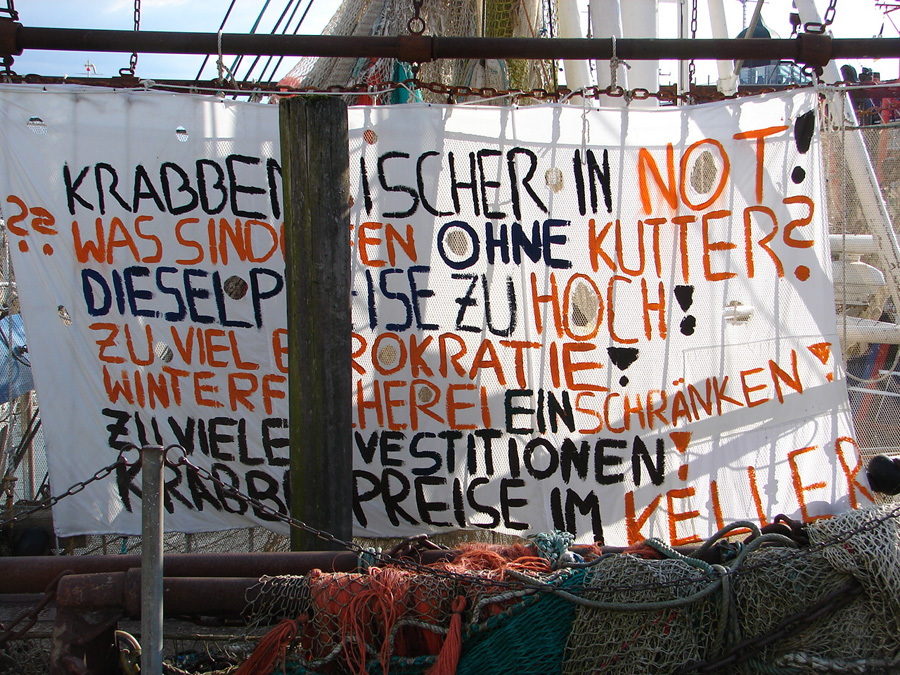 KRABBENFISCHER IN NOT!
?? WAS SIND HÄFEN OHNE KUTTER?
DIESELPREISE ZU HOCH!!
ZU VIEL BÜROKRATIE!
WINTERFISCHEREI EINSCHRÄNKEN!
ZU VIELE INVESTITIONEN!
KRABBENPREISE IM KELLER